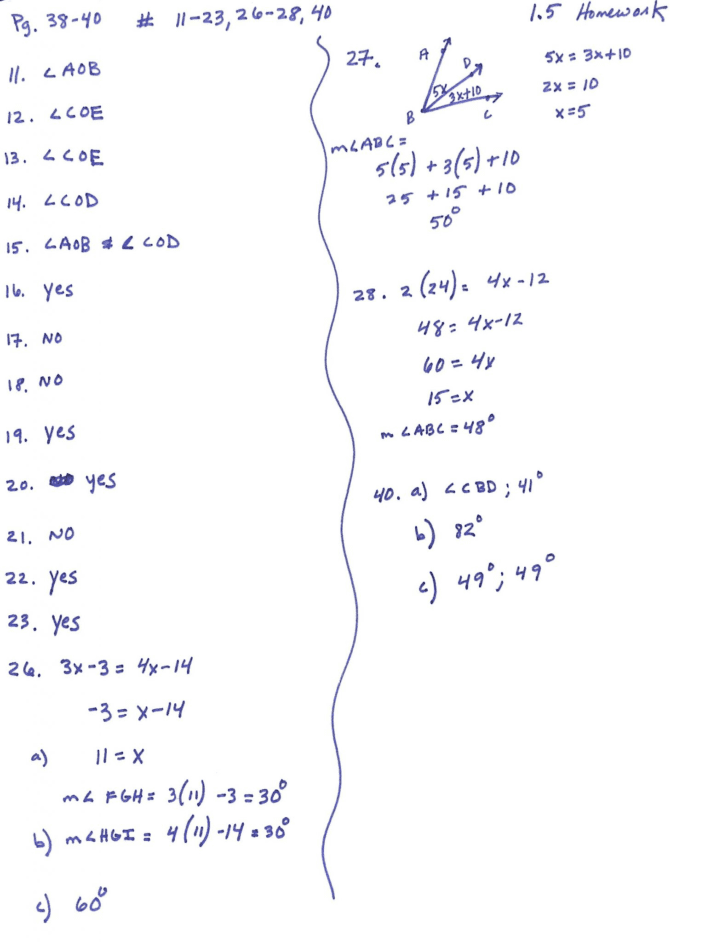 Pg. 38-40 # 11-23, 26-28, 40
1.5 Homework
11. ∠AOB
12. ∠COE
13. ∠COE
14. ∠COD
15. ∠AOB & ∠COD
16. Yes
17. NO
18. NO
19. Yes
20. yes
21. NO
22. Yes
23. Yes
26. 3x-3 = 4x-14
-3 = x-14
a) 11 = x
m∠FGH = 3(11) -3 = 30°
b) m∠HGI = 4(11) -14 = 30°
c) 60°
27. A D 5x 3x+10 B C
5x = 3x+10
2x = 10
x=5
m∠ABC =
5(5) + 3(5) +10
25 + 15 + 10
50°
28. 2(24) = 4x-12
48 = 4x-12
60 = 4x
15 = x
m∠ABC = 48°
40. a) ∠CBD ; 41°
b) 82°
c) 49°; 49°